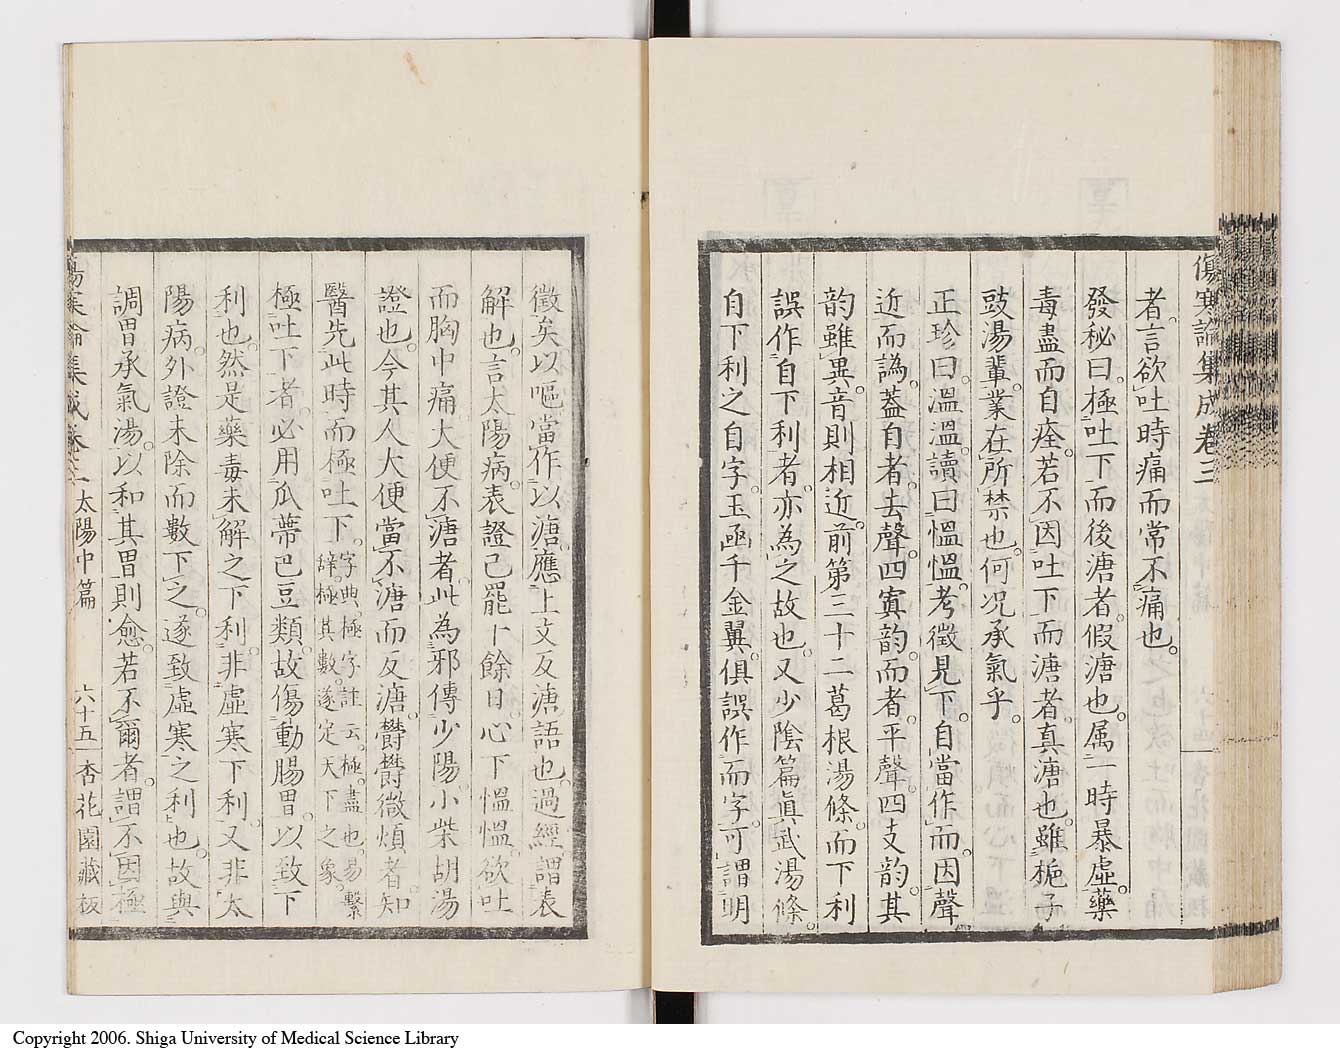 傷寒論集成卷三
者。言欲吐時痛而常不痛也。
發秘曰。極吐下而後溏者。假溏也。属一時暴虛。藥
毒盡而自痊。若不因吐下而溏者。真溏也。雖梔子
豉湯輩。業在所禁也。何况承氣乎。
正珍曰。溫溫。讀曰慍慍。考徵見下。自當作而。因聲
近而譌。蓋自者。去聲。四寘韵。而者。平聲。四支韵。其
韵雖異。音則相近。前第三十二葛根湯條。而下利
誤作自下利者。亦為之故也。又少陰篇眞武湯條。
自下利之自字。玉凾千金翼。俱誤作而字。可謂明
徵矣。以嘔當作以溏。應上文反溏語也。過經。謂表
解也。言太陽病。表證已罷十餘日。心下慍慍。欲吐
而胸中痛。大便不溏者。此為邪傳少陽。小柴胡湯
證也。今其人大便當不溏而反溏。欝欝微煩者。知
醫先此時而極吐下。字典。極字註云。極。盡也。易繫
辭。極其數。遂定天下之象。
極吐下者。必用瓜蔕巴豆類。故傷動腸胃。以致下
利也。然是藥毒未解之下利。非虛寒下利。又非太
陽病。外證未除而數下之。遂致虛寒之利也。故與
調胃承氣湯。以和其胃則愈。若不爾者。謂不因極
傷寒論集成卷三 太陽中篇 六十五 杏花園藏板
Copyright 2006. Shiga University of Medical Science Library